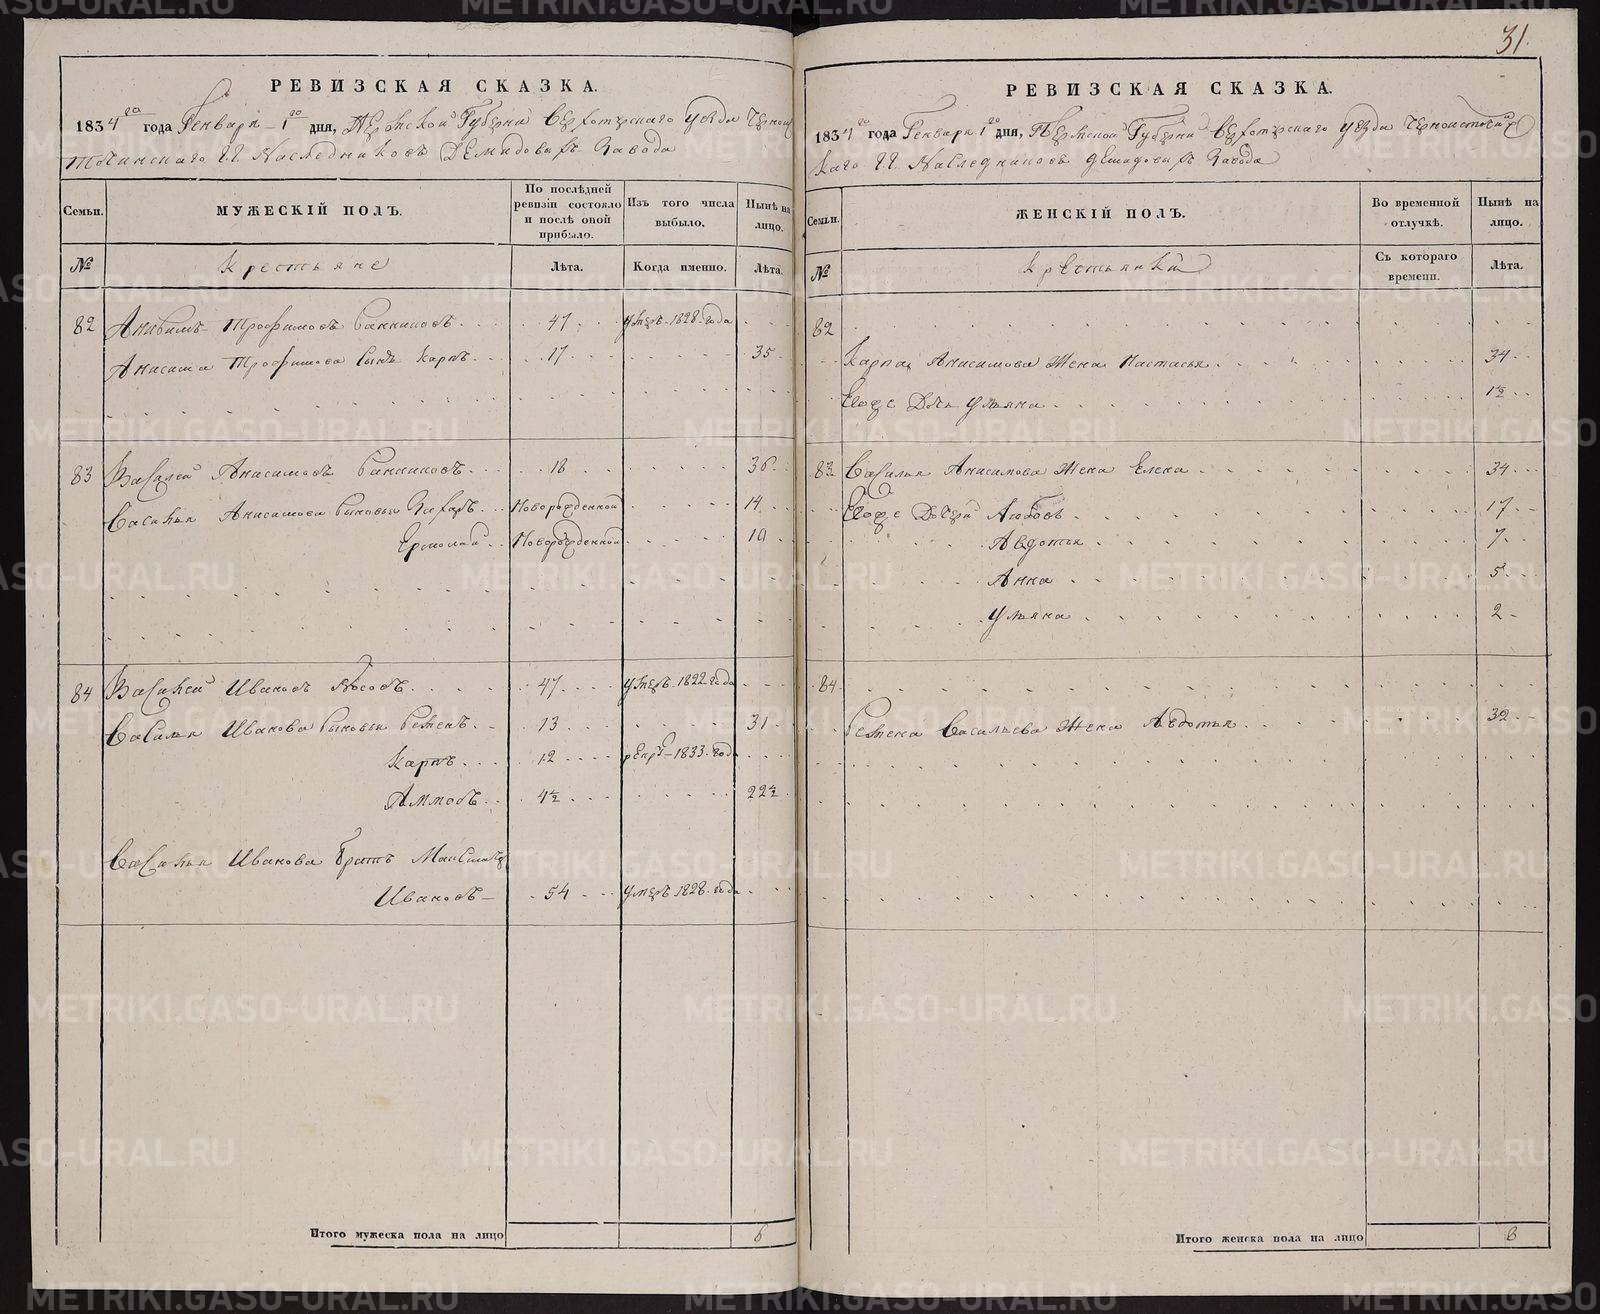 31.
РЕВИЗСКАЯ СКАЗКА.
1834го года Генваря 1го дня, Пермской Губернии Верхотурского уѣзда Черноис
точинскаго Г.Г. Наследниковъ Демидовыхъ Завода
Семьи. МУЖЕСКІЙ ПОЛЪ. По послѣдней ревизіи состояло и послѣ оной прибыло. Изъ того числа выбыло. Нынѣ на лицо.
№ Крестьяне Лѣта. Когда именно. Лѣта.
82 Анисимъ Трофимовъ 47 умеръ 1828 года
Анисима Трофимова сынъ Карпъ 17 35
83 Василей Анисимовъ 18 36
Василья Анисимова сыновья Новорожденной 14
Ермолай Новорожденной 10
84 Василей Ивановъ Носовъ 47 умеръ 1822 года
Василья Иванова сыновья 13 31
Карпъ 12 рекр 1833 года
Аммосъ 4½ 22½
Василья Иванова братъ
Ивановъ 54 умеръ 1828 года
Итого мужеска пола на лицо 6
РЕВИЗСКАЯ СКАЗКА.
1834го года Генваря 1го дня, Пермской Губернии Верхотурского уѣзда Черноисточинс
каго Г.Г. Наследниковъ Демидовыхъ Завода
Семьи. ЖЕНСКІЙ ПОЛЪ. Во временной отлучкѣ. Нынѣ на лицо.
№ Крестьянки Съ котораго времени. Лѣта.
82
Карпа Анисимова жена Настасья 34
Ево же дчь Ульяна 1½
83 Василья Анисимова жена Елена 34
Ево же дочери Любовь 17
Авдотья 7
Анна 5
Ульяна 2
84
Васильева жена Авдотья 32
Итого женска пола на лицо 8
METRIKI.GASO-URAL.RU